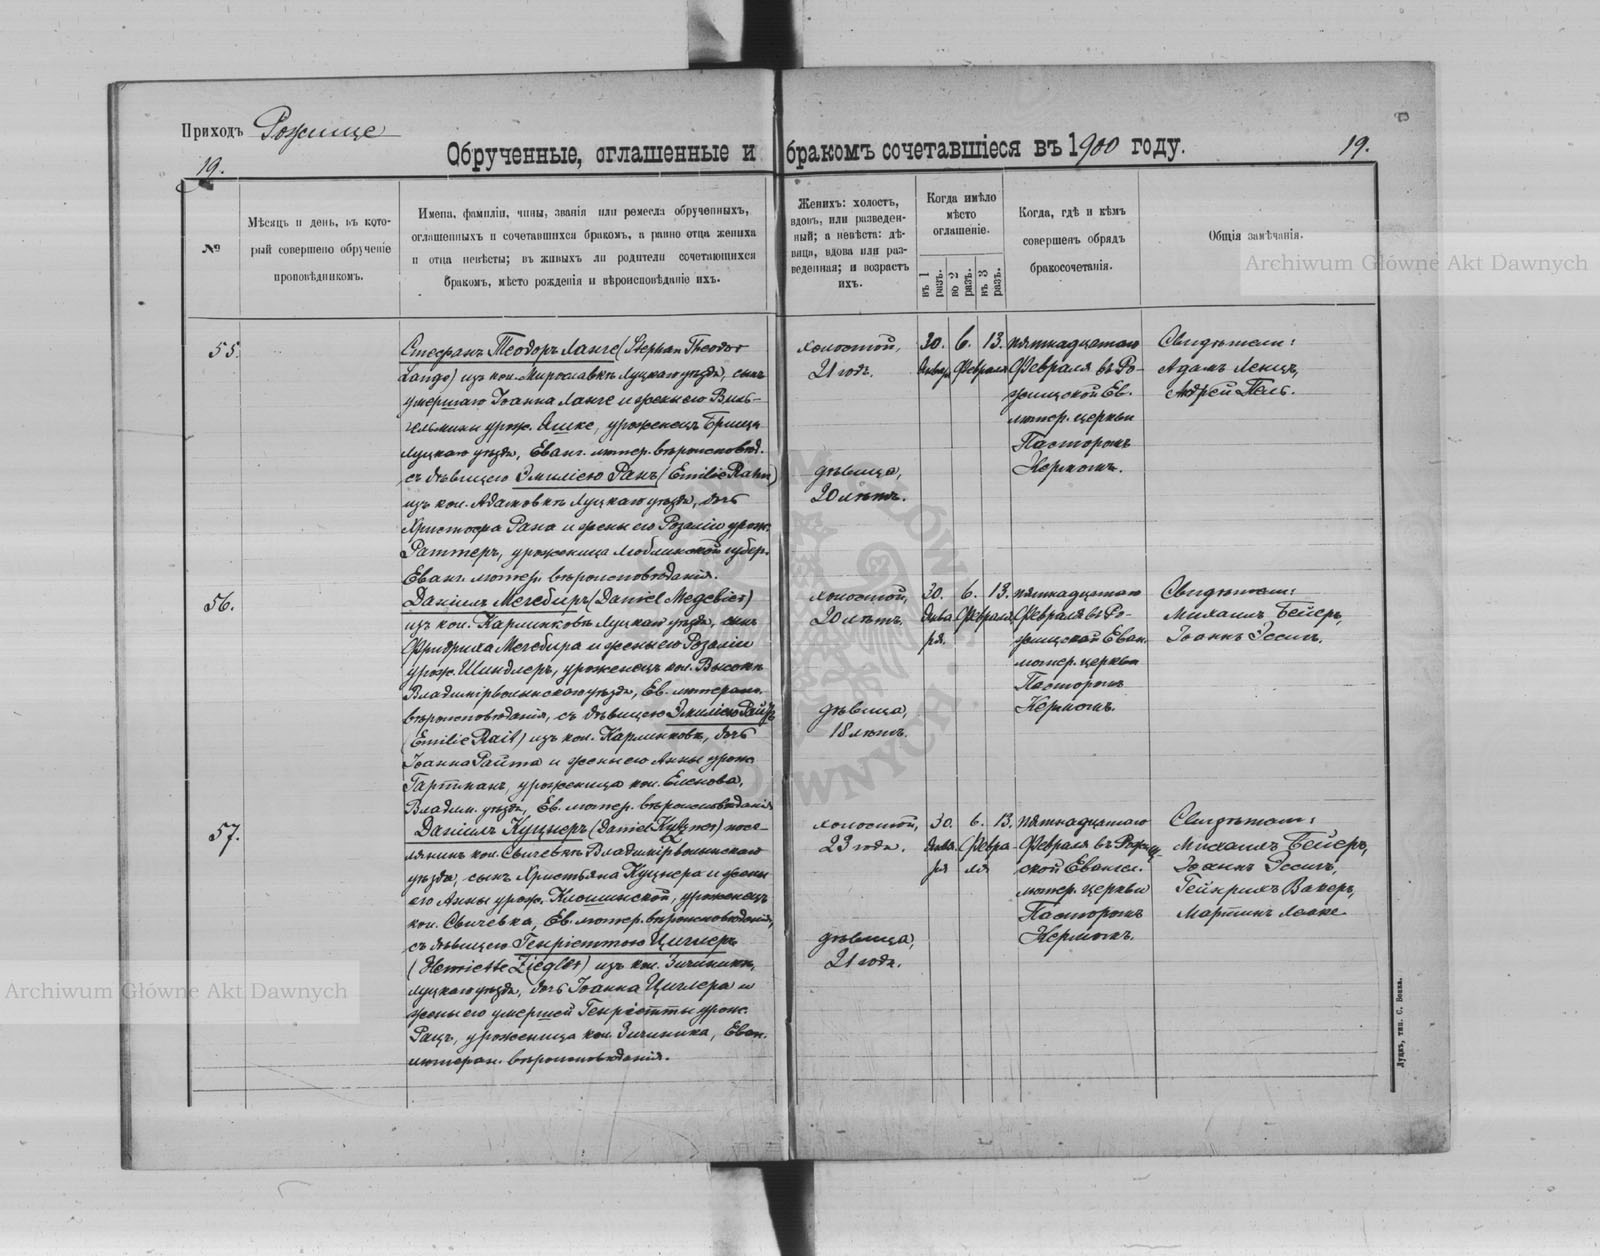 Приходъ Рожище
19.
Обрученные, оглашенные и бракомъ сочетавшіеся въ 1900 году.
19.
№
Мѣсяцъ и день, въ кото-
рый совершено обрученіе
проповѣдникомъ.
Имена, фамиліи, чины, званія или ремесла обрученныхъ,
оглашенныхъ и сочетавшихся бракомъ, а равно отца жениха
и отца невѣсты; въ живыхъ ли родители сочетающихся
бракомъ, мѣсто рожденія и вѣроисповѣданіе ихъ.
Женихъ: холостъ,
вдовъ, или разведен-
ный; а невѣста: дѣ-
вица, вдова или раз-
веденная; и возрастъ
ихъ.
Когда имѣло
мѣсто
оглашеніе.
въ 1 разъ.
во 2 разъ.
въ 3 разъ.
Когда, гдѣ и кѣмъ
совершенъ обрядъ
бракосочетанія.
Общія замѣчанія.
Archiwum Główne Akt Dawnych
55.
Стефанъ Теодоръ Ланге (Stephan Theodor
Lange) изъ кол. Мирославкѣ Луцкаго уѣзда, сынъ
умершаго Іоанна Ланге и жены его Виль-
гельмины урож. Яшке, уроженецъ
Луцкаго уѣзда, Еванг. лютер. вѣроисповѣд.
съ дѣвицею Эмиліею Ранъ (Emilie Rahn)
изъ кол. Адамовкѣ Луцкаго уѣзда, дочь
Христофа Рана и жены его Розаліи урож.
Раттеръ, уроженица Люблинской губер.
Еванг. лютер. вѣроисповѣданія.
холостой,
21 годъ.
дѣвица,
20 лѣтъ.
30. 6. 13.
Января Февраля
пятнадцатаго
Февраля въ Ро-
жищской Ев.
лютер. церкви
Пасторомъ
Кермомъ.
Свидѣтели:
Адамъ Ленцъ,
Андрей Пель.
56.
Даніилъ Мегебиръ (Daniel Megebier)
изъ кол. Карлинковъ Луцкаго уѣзда, сынъ
Фридриха Мегебира и жены его Розаліи
урож. Шиндлеръ, уроженецъ кол. Высокъ
Владимірволынскаго уѣзда, Ев. лютеран.
вѣроисповѣданія, съ дѣвицею Эмиліею Райтъ
(Emilie Rait) изъ кол. Карлинковъ, дочь
Іоанна Райта и жены его Анны урож.
Гартманъ, уроженица кол. Еленова,
Владим. уѣзда, Ев. лютер. вѣроисповѣданія
холостой,
20 лѣтъ.
дѣвица,
18 лѣтъ.
30. 6. 13.
Янва Февраля
ря.
пятнадцатаго
Февраля въ Ро-
жищской Еван.
лютер. церкви
Пасторомъ
Кермомъ.
Свидѣтели:
Михаилъ Бейеръ,
Іоаннъ Эссигъ.
57.
Даніилъ Куцнеръ (Daniel Kutzner) посе-
лянинъ кол. Свичевкѣ Владимірволынскаго
уѣзда, сынъ Христьяна Куцнера и жены
его Анны урож. Клошинской, уроженецъ
кол. Свичевка, Ев. лютер. вѣроисповѣданія,
съ дѣвицею Генріеттою Циглеръ
(Henriette Ziegler) изъ кол.
Луцкаго уѣзда, дочь Іоанна Циглера и
жены его умершей Генріетты урож.
Рацъ, уроженица кол. Еван.
лютеран. вѣроисповѣданія.
холостой,
23 года.
дѣвица,
21 года.
30. 6. 13.
Янва Февра
ря ля
пятнадцатаго
Февраля въ Рожищ-
ской Евангел.
лютер. церкви
Пасторомъ
Кермомъ.
Свидѣтели:
Михаилъ Бейеръ,
Іоаннъ Эссигъ,
Гейнрихъ Вакеръ,
Мартинъ
Луцкъ, тип. С. Бокка.
Archiwum Główne Akt Dawnych